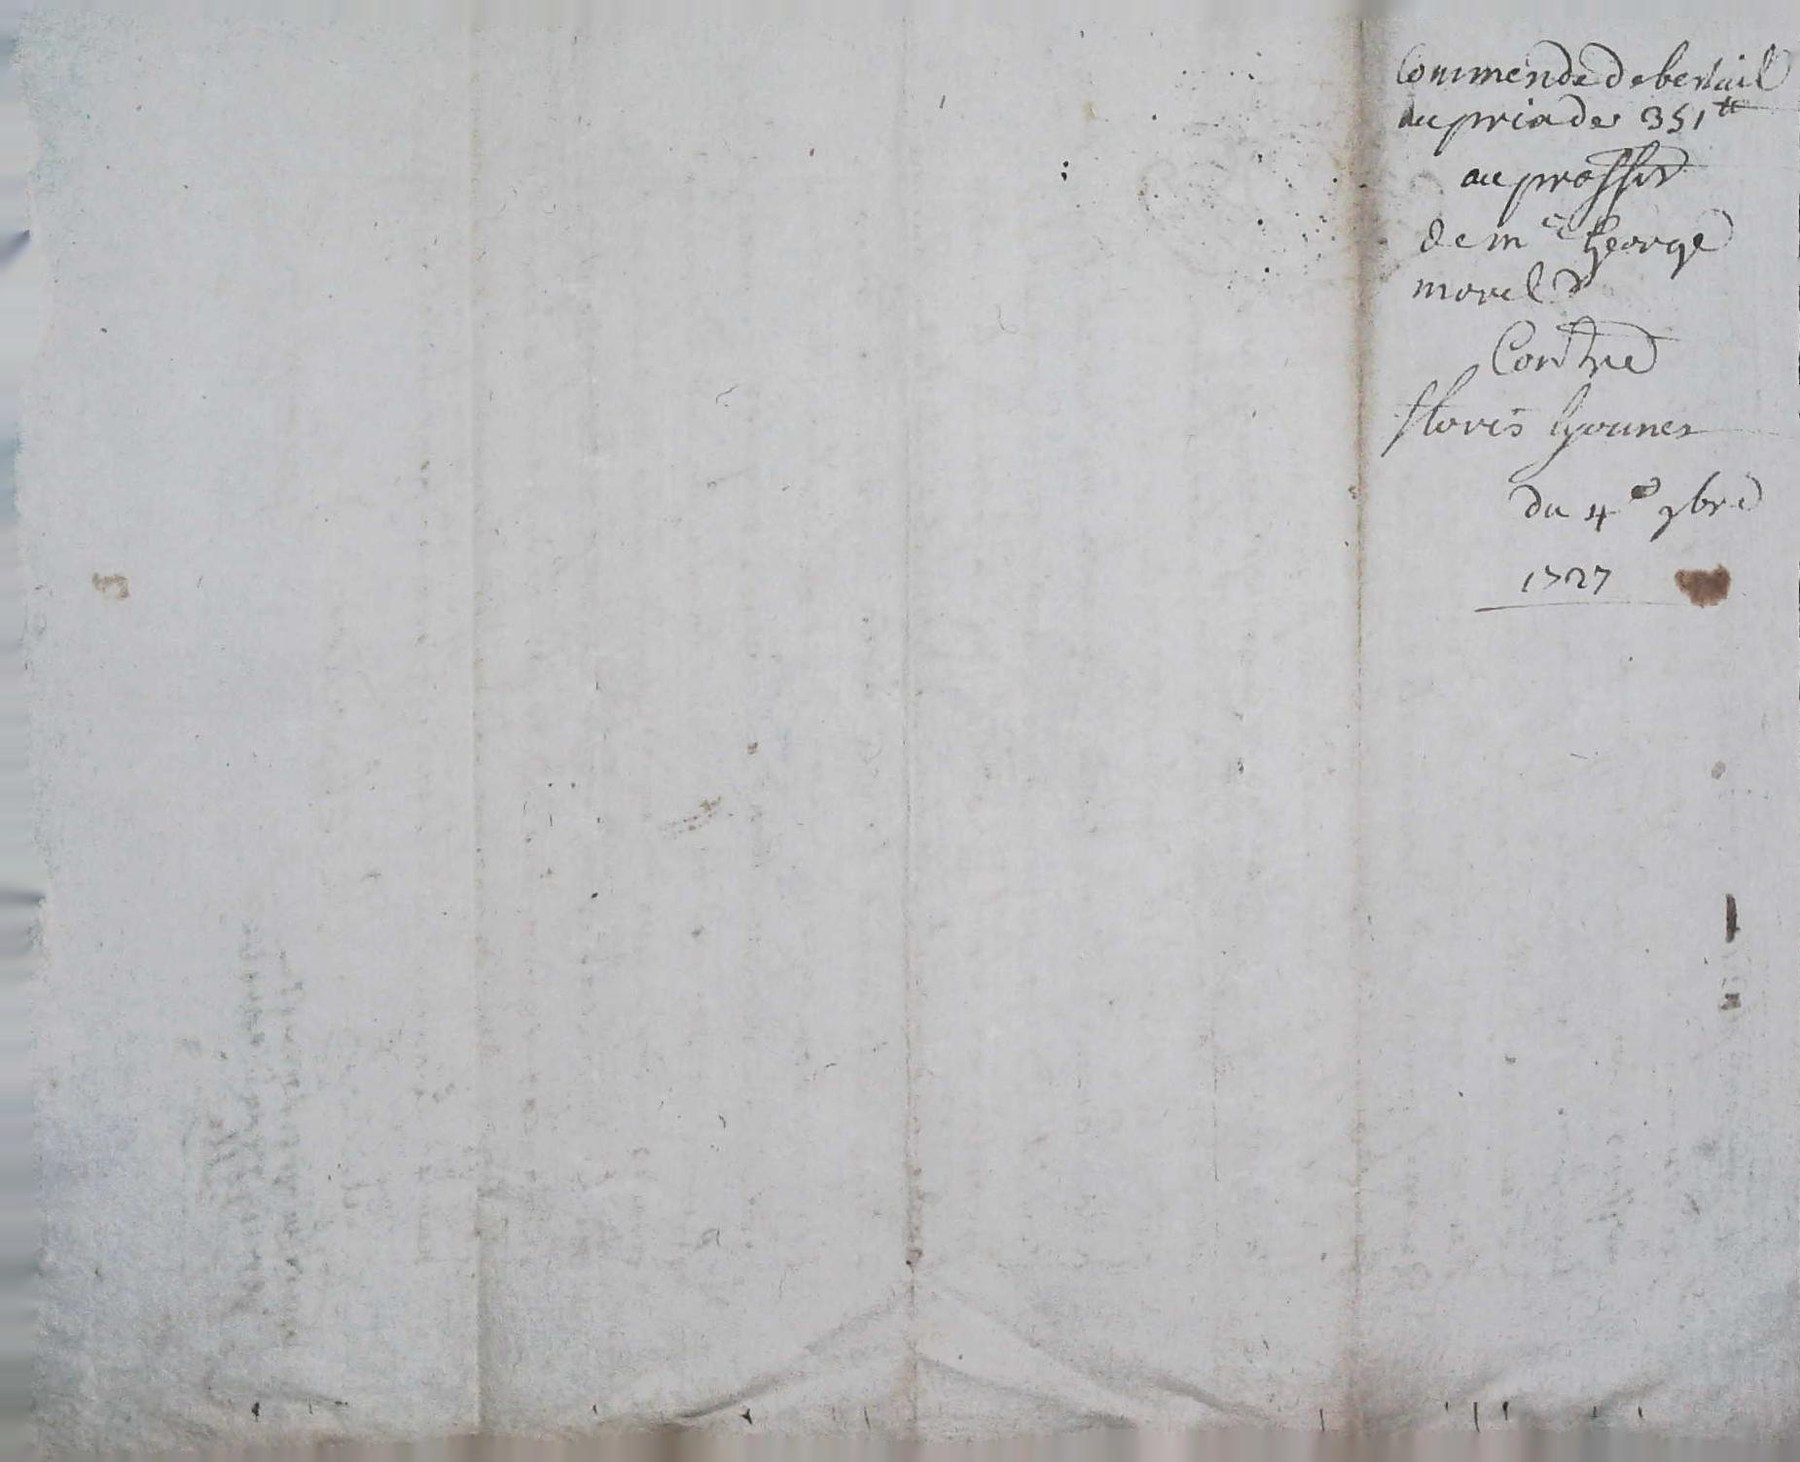 Commende de bestail
au prix de 351 tt
au proffit
de m.e George
morel
Contre
floris
du 4e 9bre
1727